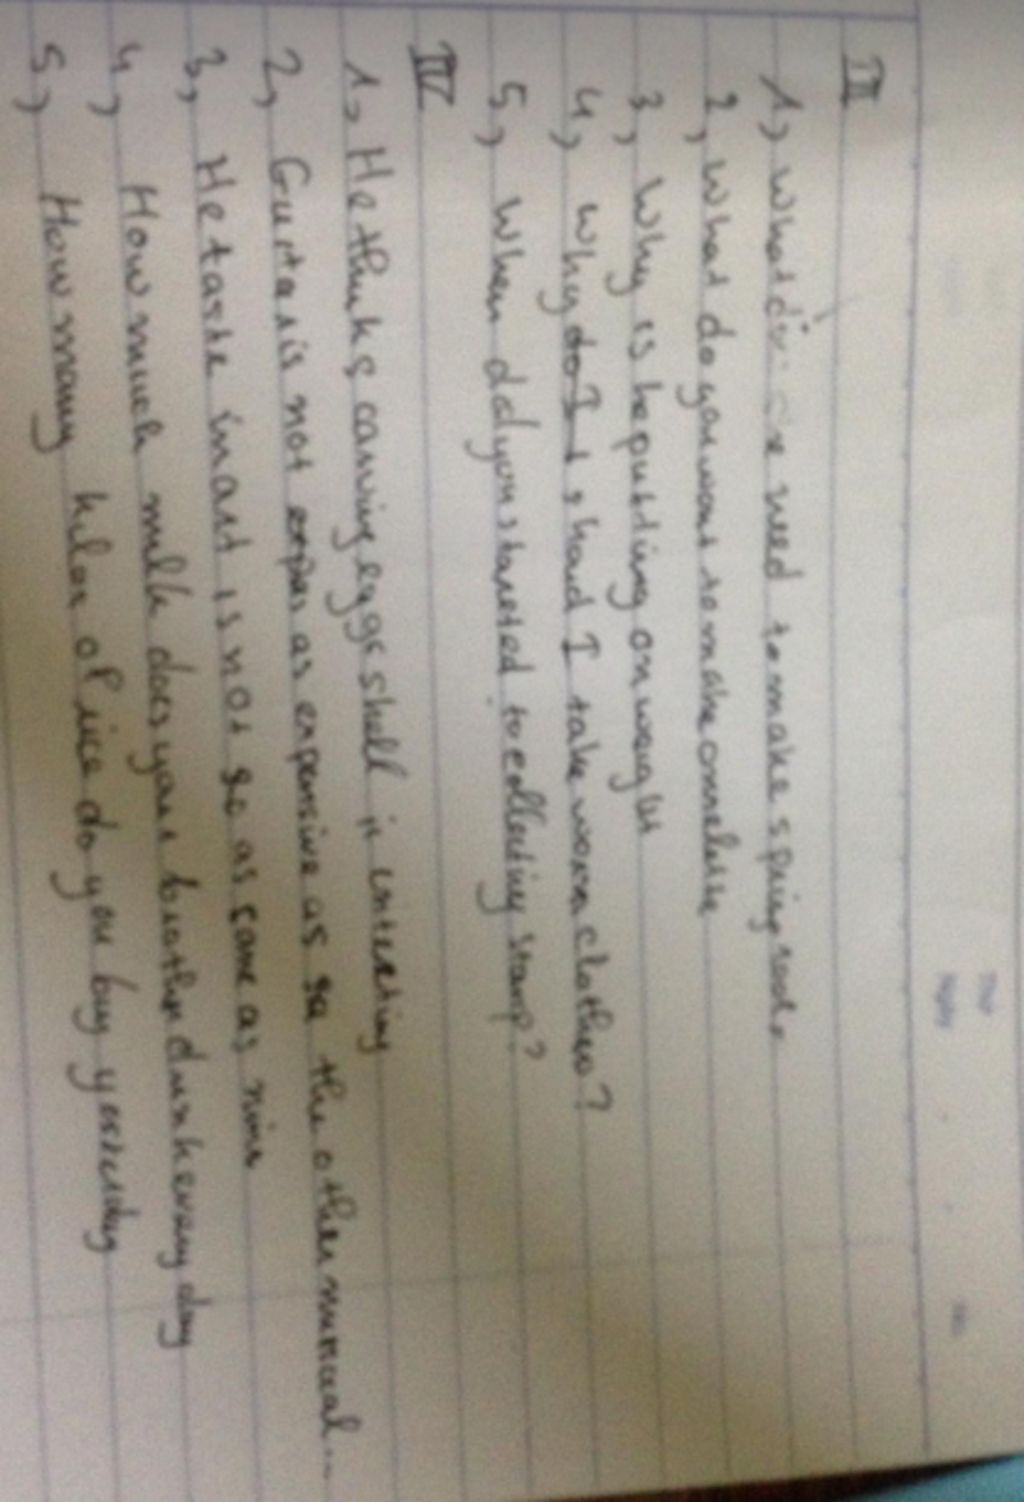 III
1, What need to make spring rools
2, What do you want to make omelette
3, Why is he putting on
4, Why do I + shoud I take warm clothes?
5, When did you started to collecting stamp?
IV
1, He thinks carving eggshell is interesting
2, Guitar is not expen as expensive as sa the other musical...
3, He taste in art is not so as same as mine
4, How much milk does your brother drink every day
5, How many kilos of rice do you buy yesterday